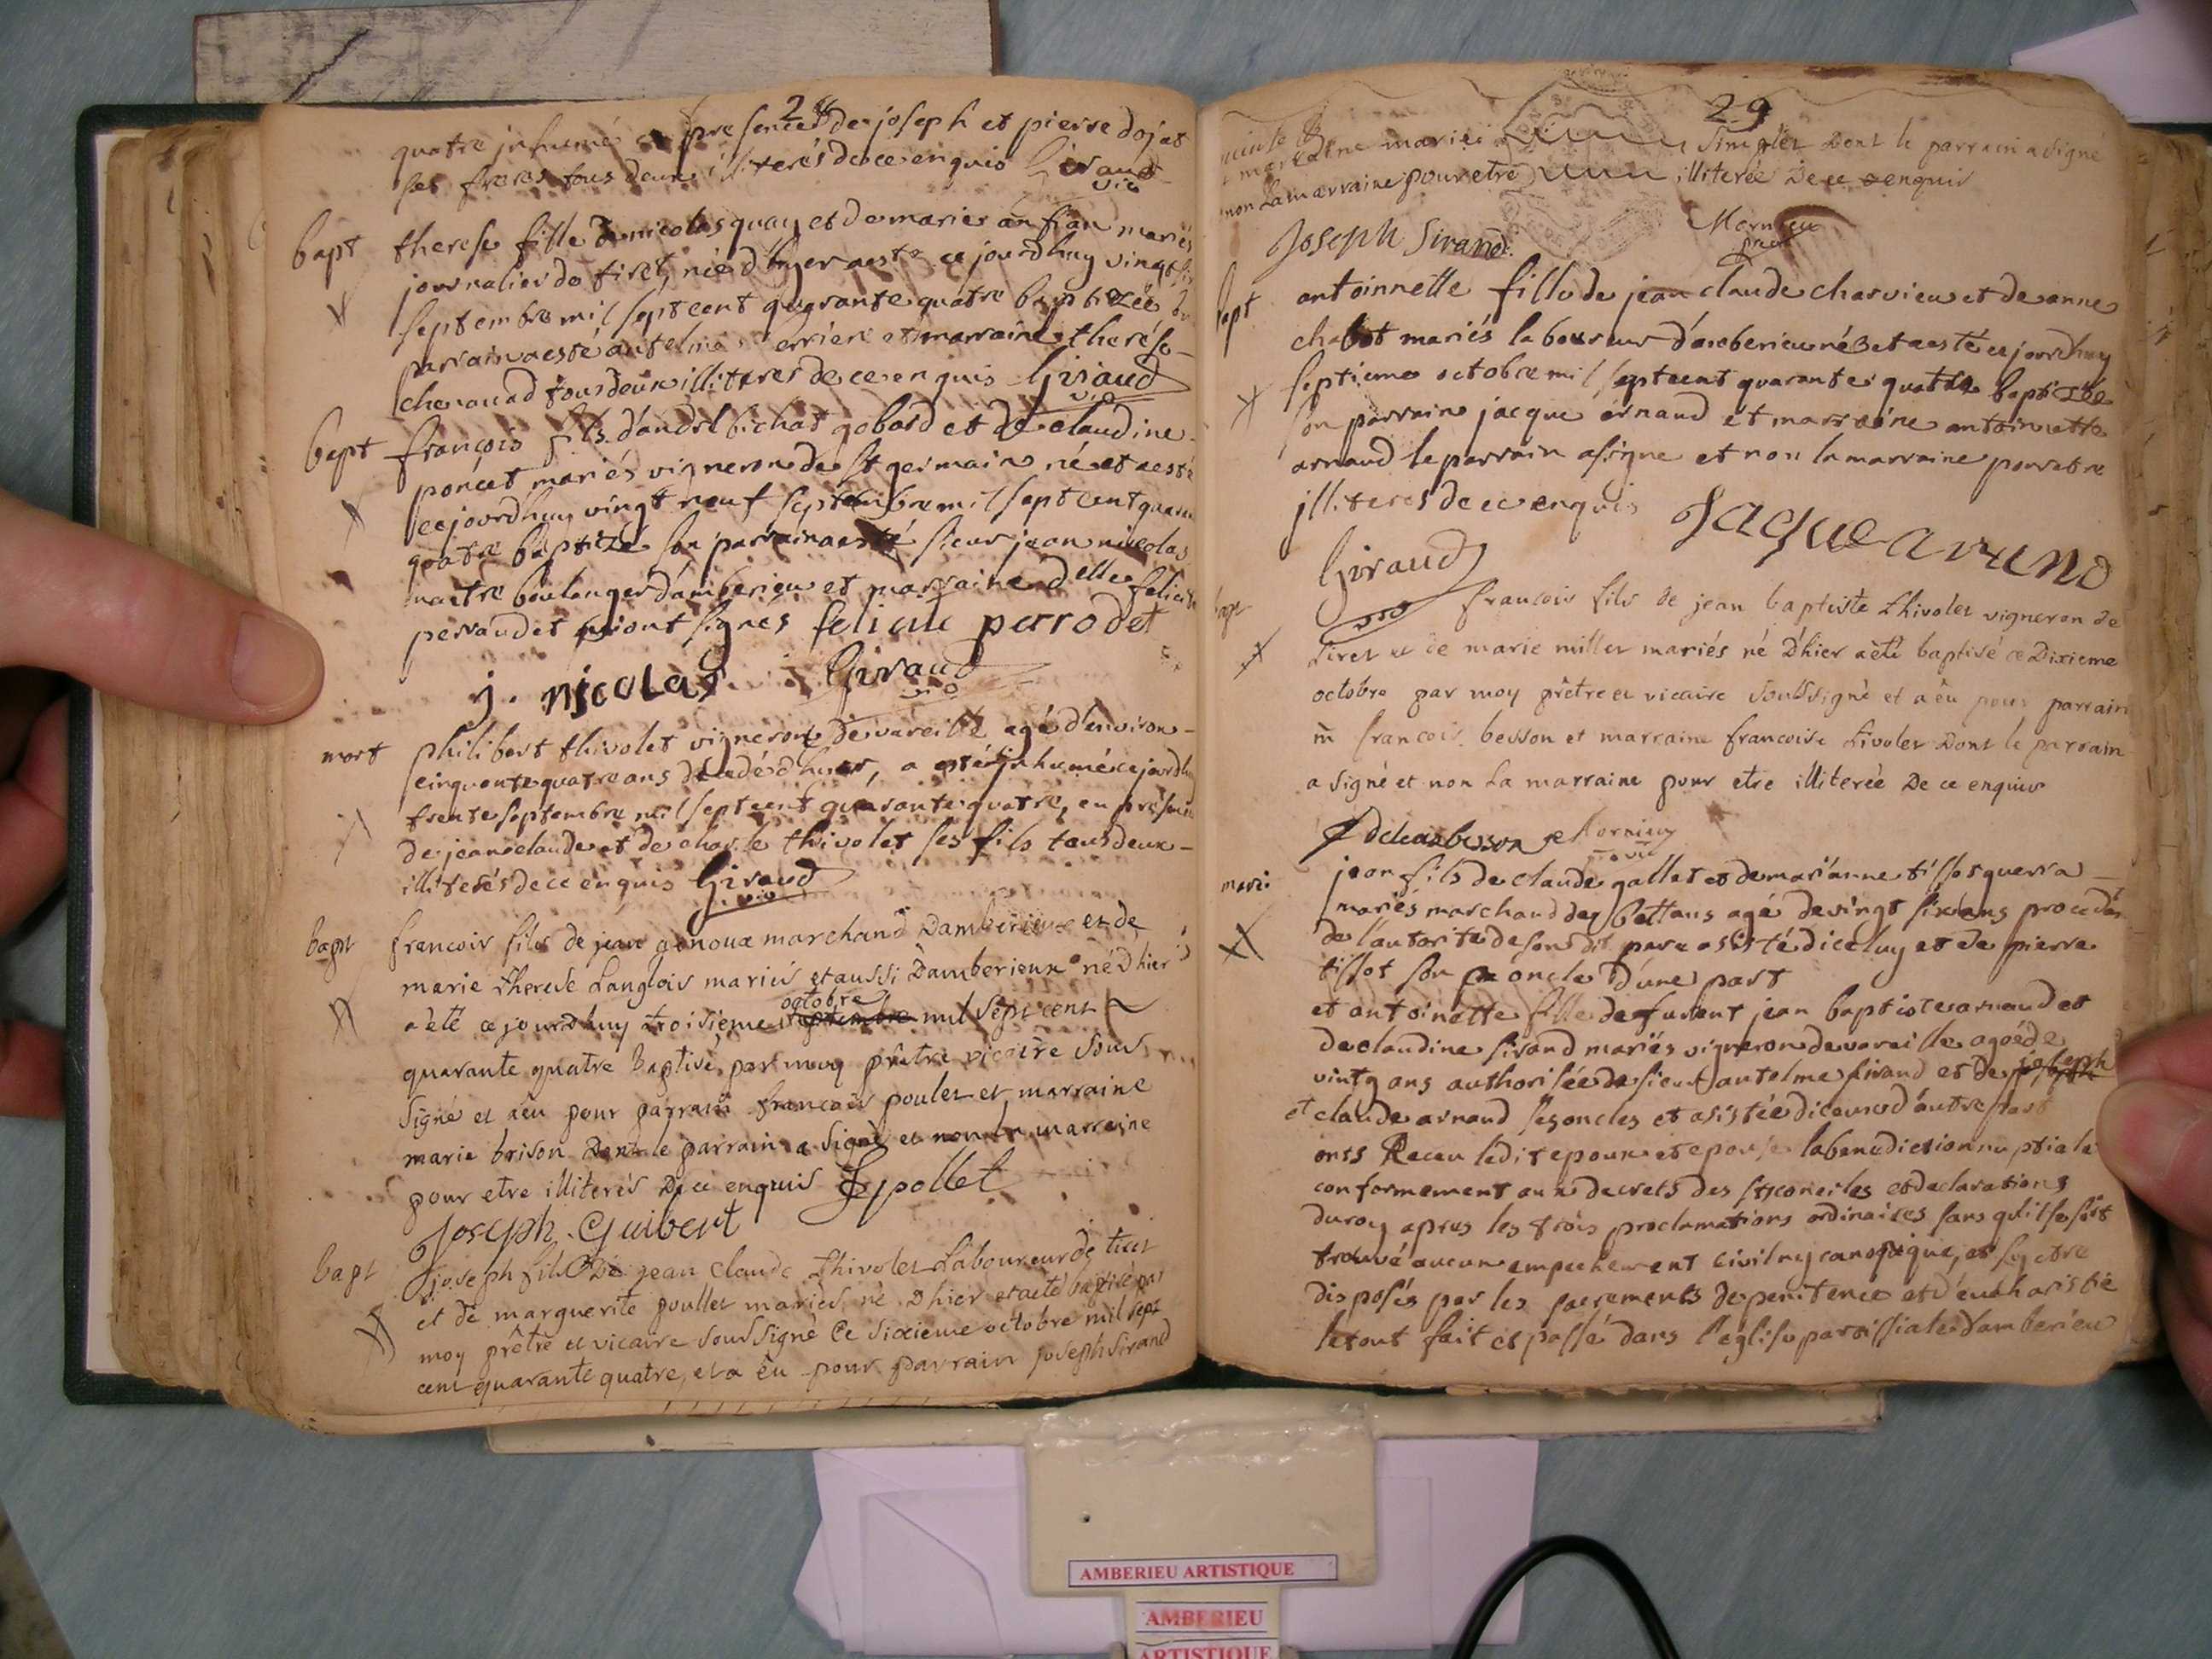 28
quatre inhumé en presence de joseph et pierre dojat
ses freres tous deux illiterés de ce enquis Giraud
vic
bapt therese fille de nicolas quay et de marie mariés
journalier de tiret, née d'hyer aeste ce jourdhuy vingt
septembre mil septcent quarante quatre baptizée
parrain aesté antelme et marraine therése
chenavad tous deux illiteres de ce enquis Giraud
vic
bapt françois fils d'andré bichat gobard et de claudine
poncet mariés vigneron de St germain né et aesté
ce jourdhuy vingt neuf septembre mil septcent quaran
quatre baptizé son parrain aesté sieur jean nicolas
maitre boulanger d'amberieu et marraine delle felicite
perraudet qui ont signés felicite perrodet
j. nicolas Giraud
vic
mort philibert thivolet vigneron de vareille agé d'environ
cinquante quatre ans decedé d'hier, a esté inhumé ce jourdhuy
trente septembre mil septcent quarante quatre, en presence
de jean claude et de charle thivolet ses fils tous deux
illiterés de ce enquis Giraud
vic
bapt francois fils de jean genoux marchand Damberieux et de
marie therese Langlois mariés et aussi Damberieux né Dhier
a été ce jourdhuy troisieme octobre septembre mil sept cent
quarante quatre Baptisé, par moy prêtre vicaire sous
signé et a eu pour parrain francois poulet et marraine
marie brison Dont le parrain a signé et non la marraine
pour etre illiterés De ce enquis F pollet
Joseph Guibert
bapt joseph fils De jean claude thivolet Laboureur de tiret
et de marguerite poullet mariés, né Dhier et a été baptisé par
moy prêtre et vicaire soussigné Ce sixieme octobre mil sept
cent quarante quatre, et a êu pour parrain joseph Sirand
29
Dont le parrain a signé
non La marraine pour etre illiterée De ce enquis
Joseph Sirand Mornieu
bapt antoinnette fille de jean claude charvieu et de anne
chabot mariés laboureur d'amberieu née et aesté ce jourdhuy
septieme octobre mil septcent quarante quatre baptizée
son parrain jacque arnaud et marraine antoinette
arnaud le parrain a signe et non la marraine pour etre
jlliteres de ce enquis Jaque arnand
Giraud
vic
bapt francois fils de jean baptiste thivolet vigneron de
tiret et de marie millet mariés né Dhier a été baptisé ce Dixieme
octobre par moy prêtre et vicaire soussigné et a êu pour parrain
m francois besson et marraine francoise tivolet Dont le parrain
a signé et non La marraine pour etre illiterée De ce enquis
besson Mornieu
mari jean fils de claude gallet et de marianne tissot querra
mariés marchand de Bettans agé de vingt six ans procedant
de l'autorite de son dit pere assisté diceluy et de pierre
tissot son oncle D'une part
et antoinette fille de furent jean baptiste arnaud et
de claudine sirand mariés vigneron de vareille agée de
vintg ans authorisée de sieur antelme sirand et de joseph
et claude arnaud ses oncles et asistée diceux d'autre part
onts Receu ledit epoux et epouse la benediction nuptiale
conformement aux decrets des sts conciles et declarations
du roy apres les trois proclamations ordinaires sans qu'il se soit
trouvé aucun empechement civil ny canonique, et sy etre
disposés par les sacrements de penitence et d'eucharistie
le tout fait et passé dans l'eglise paroissiale d'amberieu
AMBERIEU ARTISTIQUE
AMBERIEU
ARTISTIQUE